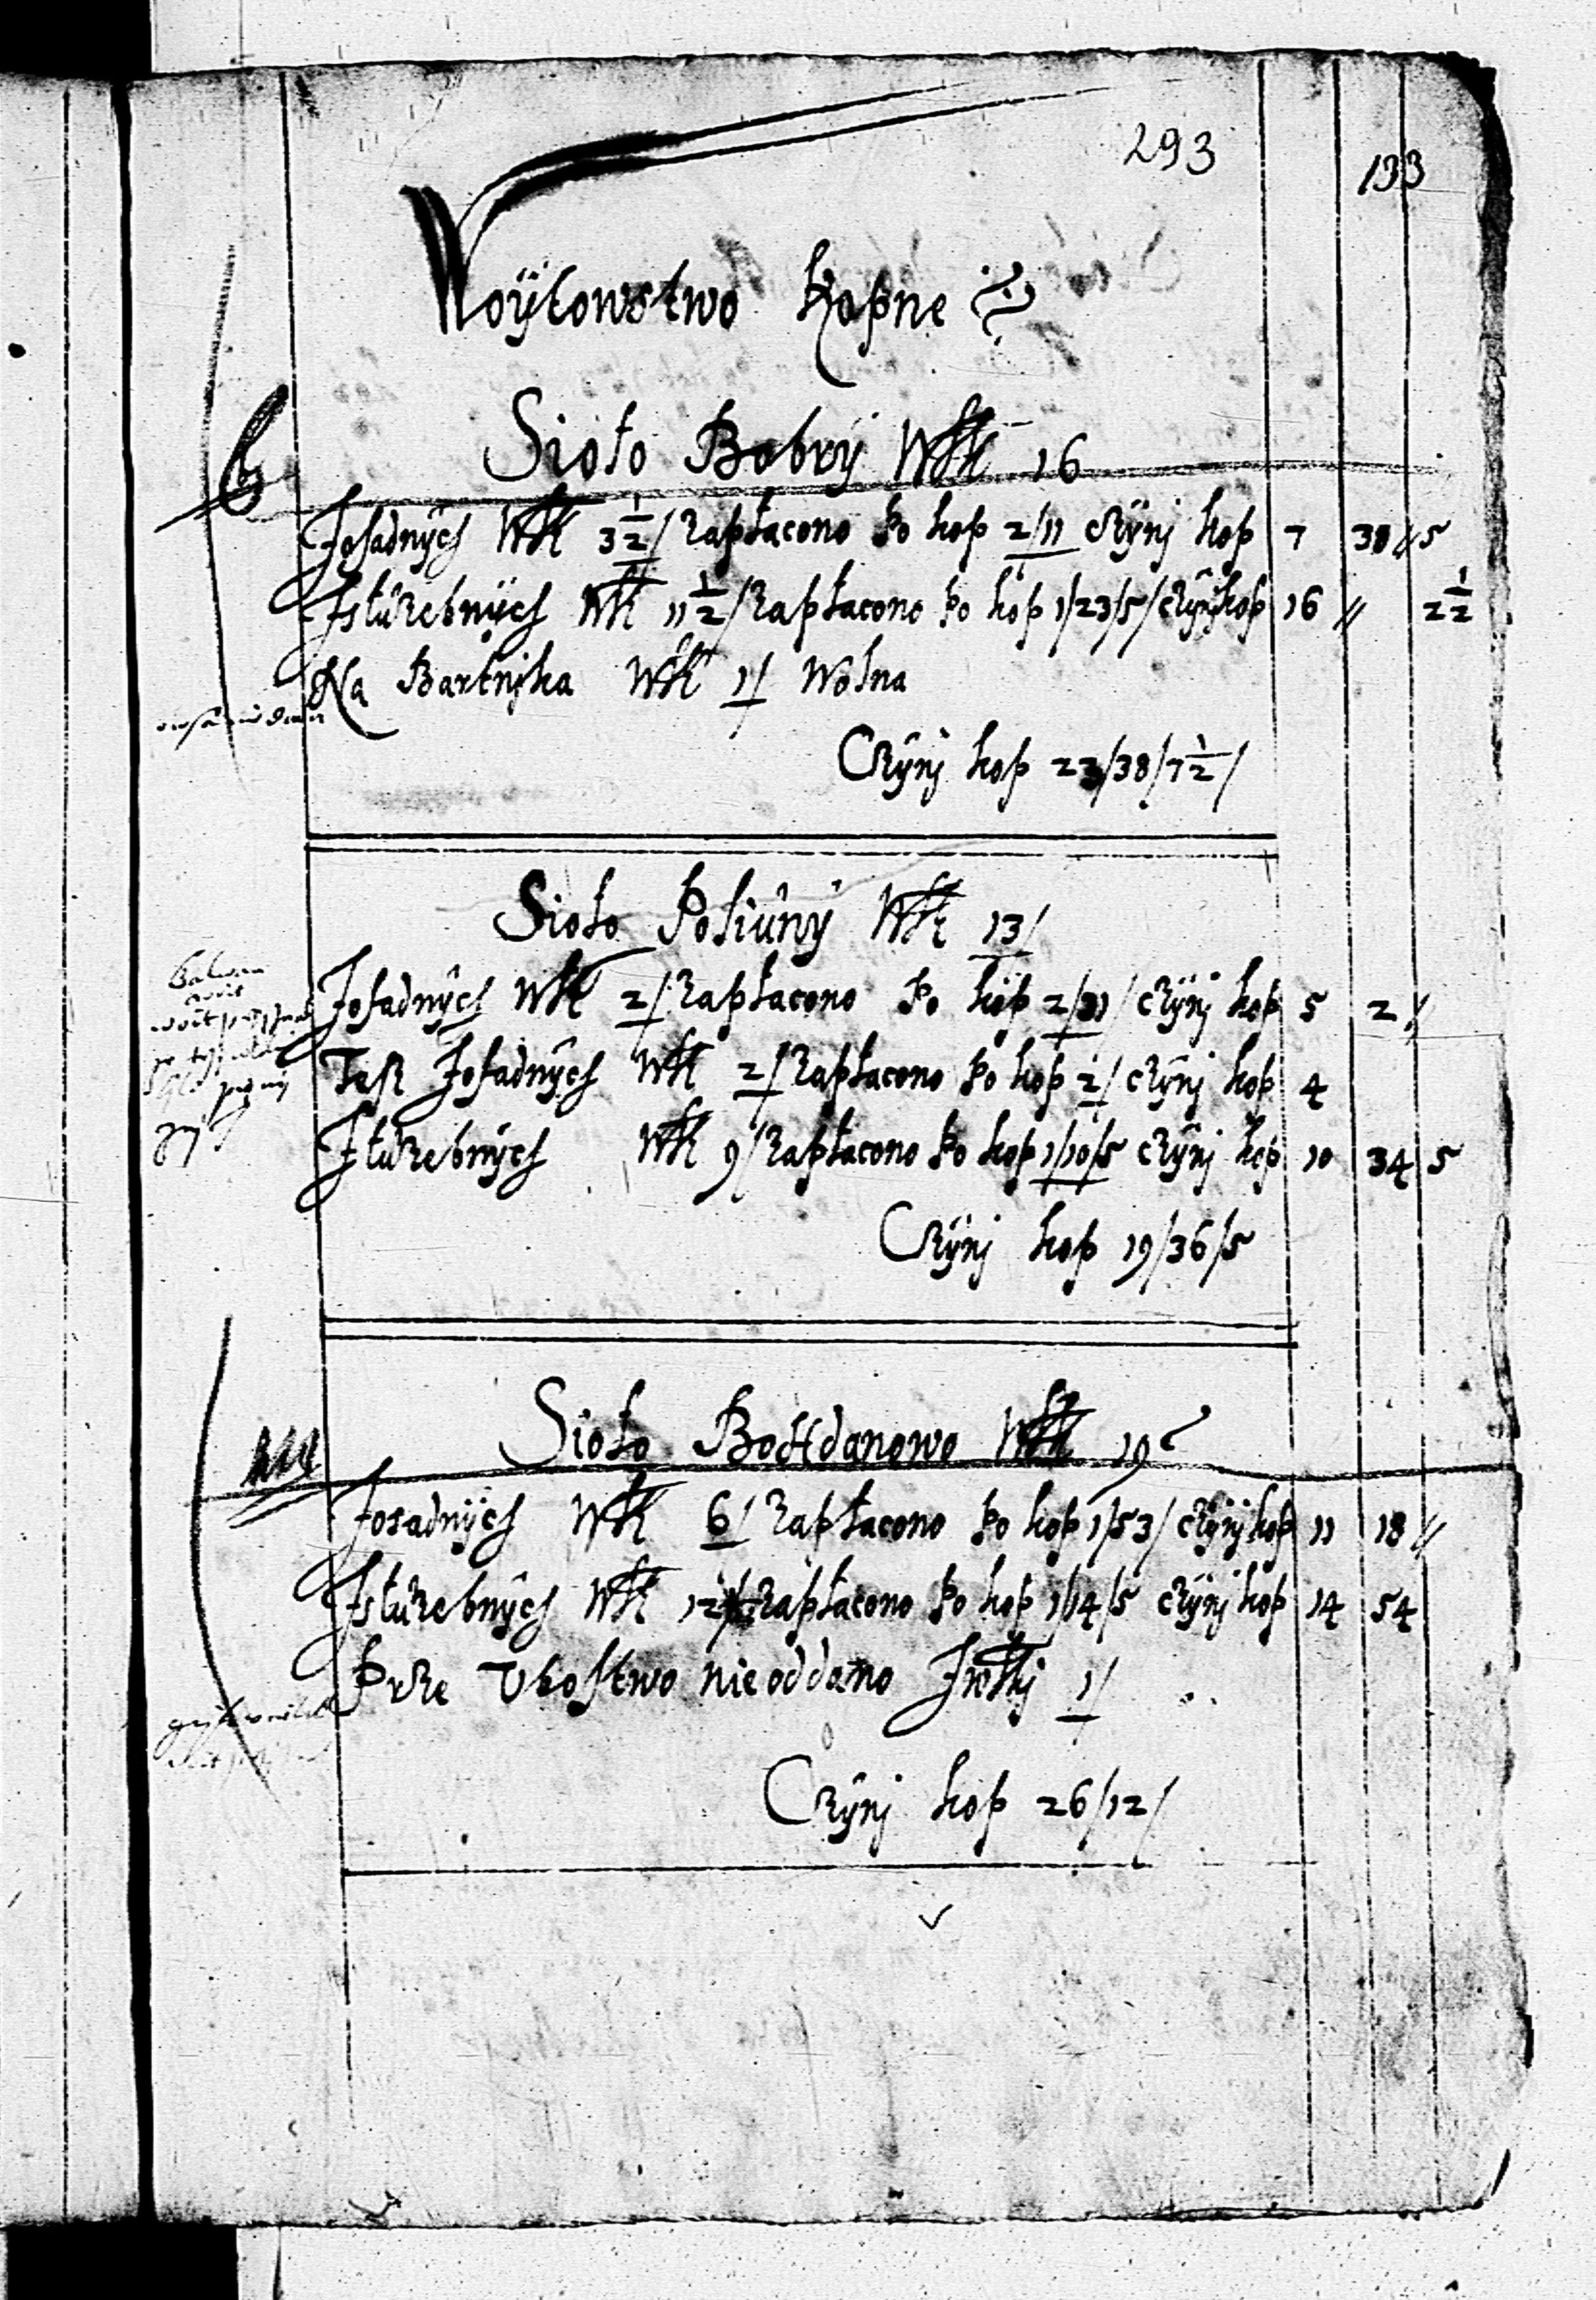 293
133
Woÿtowstwo Kopne
Sioło Bobrÿ Włk 16
Josadnÿch Włk 3 1/2/ Zapłacono Po kop 2/11 Czÿnj kop 7 38 // 5
Jsłuzebnÿch Włk 11 1/2/ Zapłacono Po kop 1/23/5/ Czÿnj kop 16 // 2 1/2
Na Bartnjka Włk 1/ Wolna
Czÿnj kop 23/38/7 1/2/
Sioło Poliunÿ Włk 13/
Josadnÿch Włk 2/ Zapłacono Po kop 2/31/ Czÿnj kop 5 2 //
Tesz Josadnÿch Włk 2/ Zapłacono Po kop 2/ Czÿnj kop 4
Jsłuzebnÿch Włk 9/ Zapłacono Po kop 1/10/5 Czÿnj kop 10 34 5
Czÿnj kop 19/36/5
Sioło Bohdanowo Włk 19
Josadnÿch Włk 6/ Zapłacono Po kop 1/53/ Czÿnj kop 11 18 //
Jsłuzebnÿch Włk 12 Zapłacono Po kop 1/14/5 Czÿnj kop 14 54
Prze Vbostwo nie oddano Jwłkj 1/
Czÿnj kop 26/12/